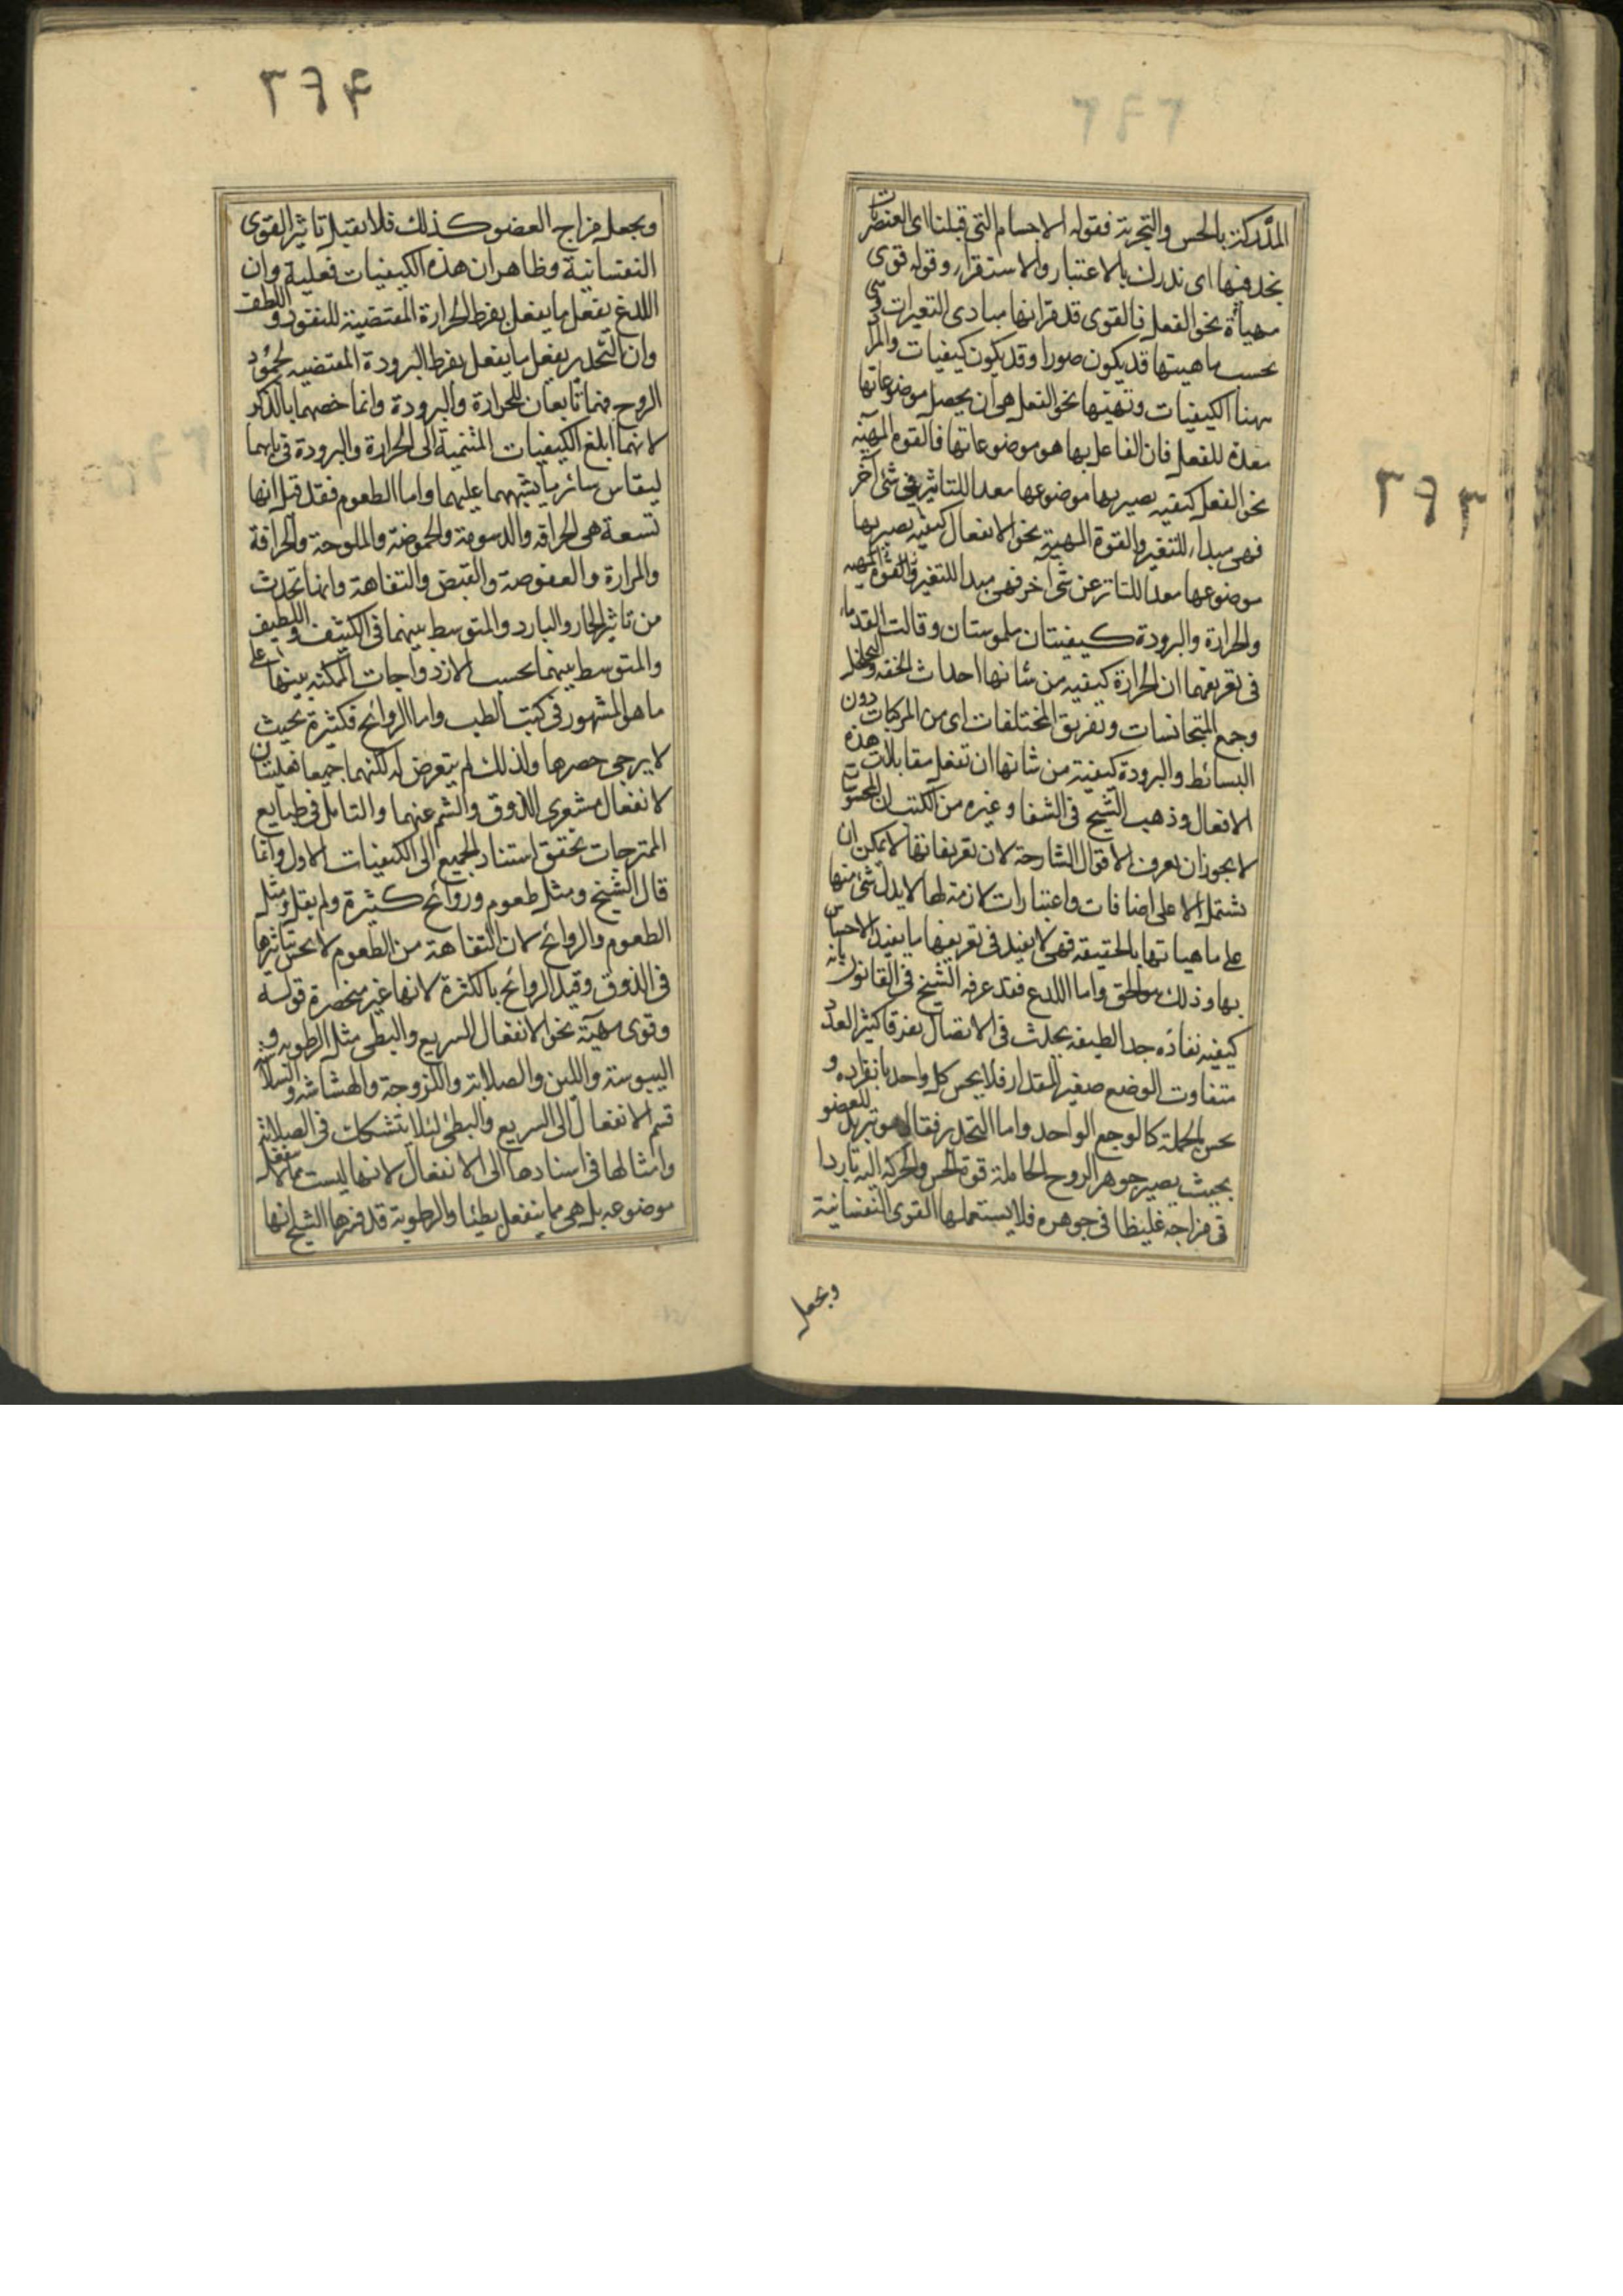 ٣٩٣
المدركة بالحس والتجربة فقوله الاجسام التى قبلنا اى العنصريات
نجد فيها اى ندرك بالاعتبار والاستقراء وقوله قوى
مهيأة نحو الفعل فالقوى قد مر انها مبادى التغيرات وهى
بحسب ماهيتها قد يكون صورا وقد يكون كيفيات والمراد
ههنا الكيفيات وتهيئها نحو الفعل هى ان يحصل موضوعاتها
معدة للفعل فان الفاعل بها هو موضوعاتها فالقوة المهيئة
نحو الفعل كيفيه يصير بها موضوعها معدا للتاثير فى شئ آخر
فهى مبداء للتغير والقوة المهيئة نحو الانفعال كيفيه يصير بها
موضوعها معدا للتاثر عن شئ اخر فهى مبدا للتغير
والحرارة والبرودة كيفيتان ملموستان وقالت القدماء
فى تعريفهما ان الحرارة كيفيه من شانها احداث الخفه والتخلخل
وجمع المتجانسات وتفريق المختلفات اى من المركبات دون
البسائط والبرودة كيفية من شانها ان تفعل مقابلات هذه
الافعال وذهب الشيخ فى الشفا وغيره من الكتب ان المحسوسات
لا يجوز ان يعرف الاقوال الشارحة لان تعريفاتها لا يمكن ان
تشتمل الا على اضافات واعتبارات لازمة لها لا يدل شئ منها
على ماهياتها بالحقيقه فهى لا يفيد فى تعريفها ما يفيد الاحساس
بها وذلك هو الحق واما اللدع فقد عرفه الشيخ فى القانون بانه
كيفيه نفاذه جدا لطيفه يحدث فى الاتصال تفرقا كثير العدد
متفاوت الوضع صغير المقدار فلا يحس كل واحد بانفراده و
يحس بالجملة كالوجع الواحد واما التخدير فقال هو تبريد للعضو
بحيث يصير جوهر الروح الحاملة قوة الحس والحركة اليه باردا
فى مزاجه غليظا فى جوهره فلا يستعملها القوى النفسانية
ويجعل
٣٩٤
ويجعل مزاج العضو كذلك فلا يقبل تاثير القوى
النفسانية وظاهر ان هذه الكيفيات فعلية وان
اللدغ يفعل ما يفعل بفرط الحرارة المقتضية للنفوذ واللطف
وان التخدير يفعل ما يفعل بفرط البرودة المقتضيه لجمود
الروح فهما تابعان للحرارة والبرودة وانما خصهما بالذكر
لانهما ابلغ الكيفيات المنتمية الى الحرارة والبرودة فى بابهما
ليقاس سائر ما يشبههما عليهما واما الطعوم فقد قيل انها
تسعة هى الحرافه والدسومة والحموضة والملوحة والحرافة
والمرارة والعفوصة والقبض والتفاهة وانما تحدث
من تاثير الحار والبارد والمتوسط بينهما فى الكثيف واللطيف
والمتوسط بينهما بحسب الازدواجات الممكنه بينها على
ما هو المشهور فى كتب الطب واما الروائح فكثيرة بحيث
لا يرجى حصرها ولذلك لم يتعرض له لكنهما جميعا فعليتان
لانفعال مشعرى الذوق والشم عنهما والتامل فى طبايع
الممتزجات تحقق استناد الجميع الى الكيفيات الاول وانما
قال الشيخ ومثل طعوم وروائح كثيرة ولم يقل ومثل
الطعوم والروائح لان التفاهة من الطعوم لا يحس بتاثيرها
فى الذوق وقيد الروائح بالكثرة لانها غير منحصرة قوله
وقوى مهيئة نحو الانفعال السريع والبطى مثل الرطوبه و
اليبوسة واللين والصلابة واللزوجة والهشاشه والسلاسة
قسم الانفعال الى السريع والبطئ لئلا يتشكك فى الصلابة
وامثالها فى اسنادها الى الانفعال لانها ليست مما لا ينفعل
موضوعه بل هى مما ينفعل بطئا والرطوبة قد فسرها الشيخ انها